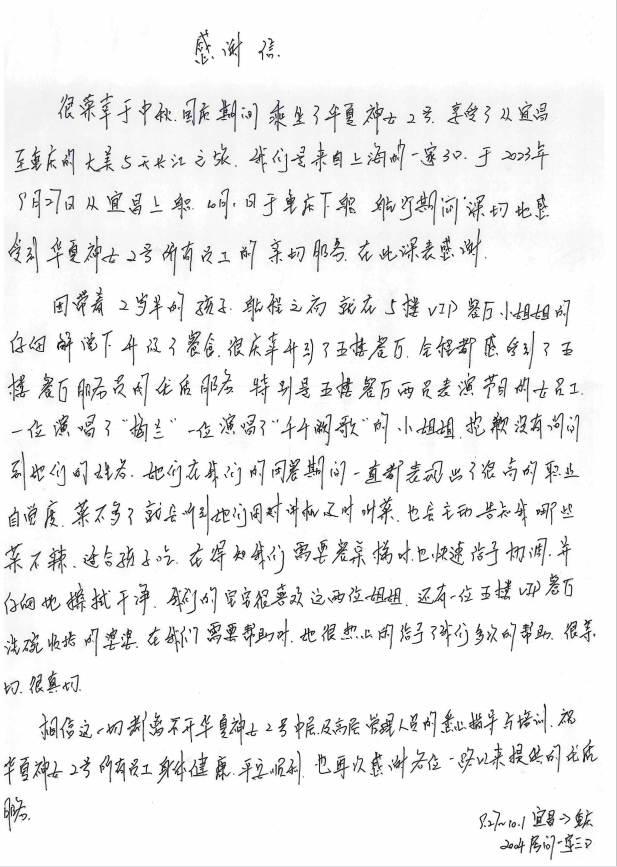 感谢信
很荣幸于中秋、国庆期间乘坐了华夏神女2号,享受了从宜昌
至重庆的大美5天长江之旅。我们是来自上海的一家3口,于2023年
9月27日从宜昌上船,10月1日于重庆下船,船行期间深切地感
受到华夏神女2号所有员工的亲切服务,在此深表感谢。
因带着2岁半的孩子,船程之初就在5楼VIP餐厅小姐姐的
仔细解说下升级了餐食,很庆幸升到了五楼餐厅,全程都感受到了五
楼餐厅服务员的优质服务,特别是五楼餐厅两员表演节目的女员工,
一位演唱了“梅兰”一位演唱了“千千阙歌”的小姐姐,抱歉没有询问
到她们的姓名。她们在我们的同餐期间一直都表现出了很高的职业
自觉度,菜不多了就会听到她们用对讲机及时叫菜,也会主动告知我哪些
菜不辣,适合孩子吃,在得知我们需要餐桌椅时也快速给予协调,并
仔细地擦拭干净,我们的宝宝很喜欢这两位姐姐,还有一位五楼VIP餐厅
洗碗收拾的婆婆,在我们需要帮助时,她很热心的给予了我们多次的帮助,很亲
切,很真切。
相信这一切都离不开华夏神女2号中层及高层管理人员的专业指导与培训,祝
华夏神女2号所有员工身体健康,平安顺利,也再次感谢各位一路以来提供的优质
服务。
9.27~10.1 宜昌→重庆
2004房间一家三口